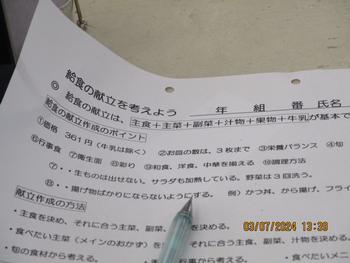 給食の献立を考えよう
年 組 番 氏名
◎ 給食の献立は、主食＋主菜＋副菜＋汁物＋果物＋牛乳が基本で
給食の献立作成のポイント
①価格 361円(牛乳は除く) ②お皿の数は、3枚まで ③栄養バランス ④旬
⑥行事食 ⑦衛生面 ⑧彩り ⑨和食、洋食、中華を揃える ⑩調理方法
⑦・・生ものは出せない。サラダも加熱している。野菜は3回洗う。
⑩・・揚げ物ばかりにならないようにする。 例）かつ丼、から揚げ、フライ
献立作成の方法
・主食を決め、それに合う主菜、副菜、
を決める。
・食べたい主菜（メインのおかず）を
それに合う主食、副菜、汁物を決める。
・旬の食材から考える。
・行事から考える。
03/07/2024 13:39